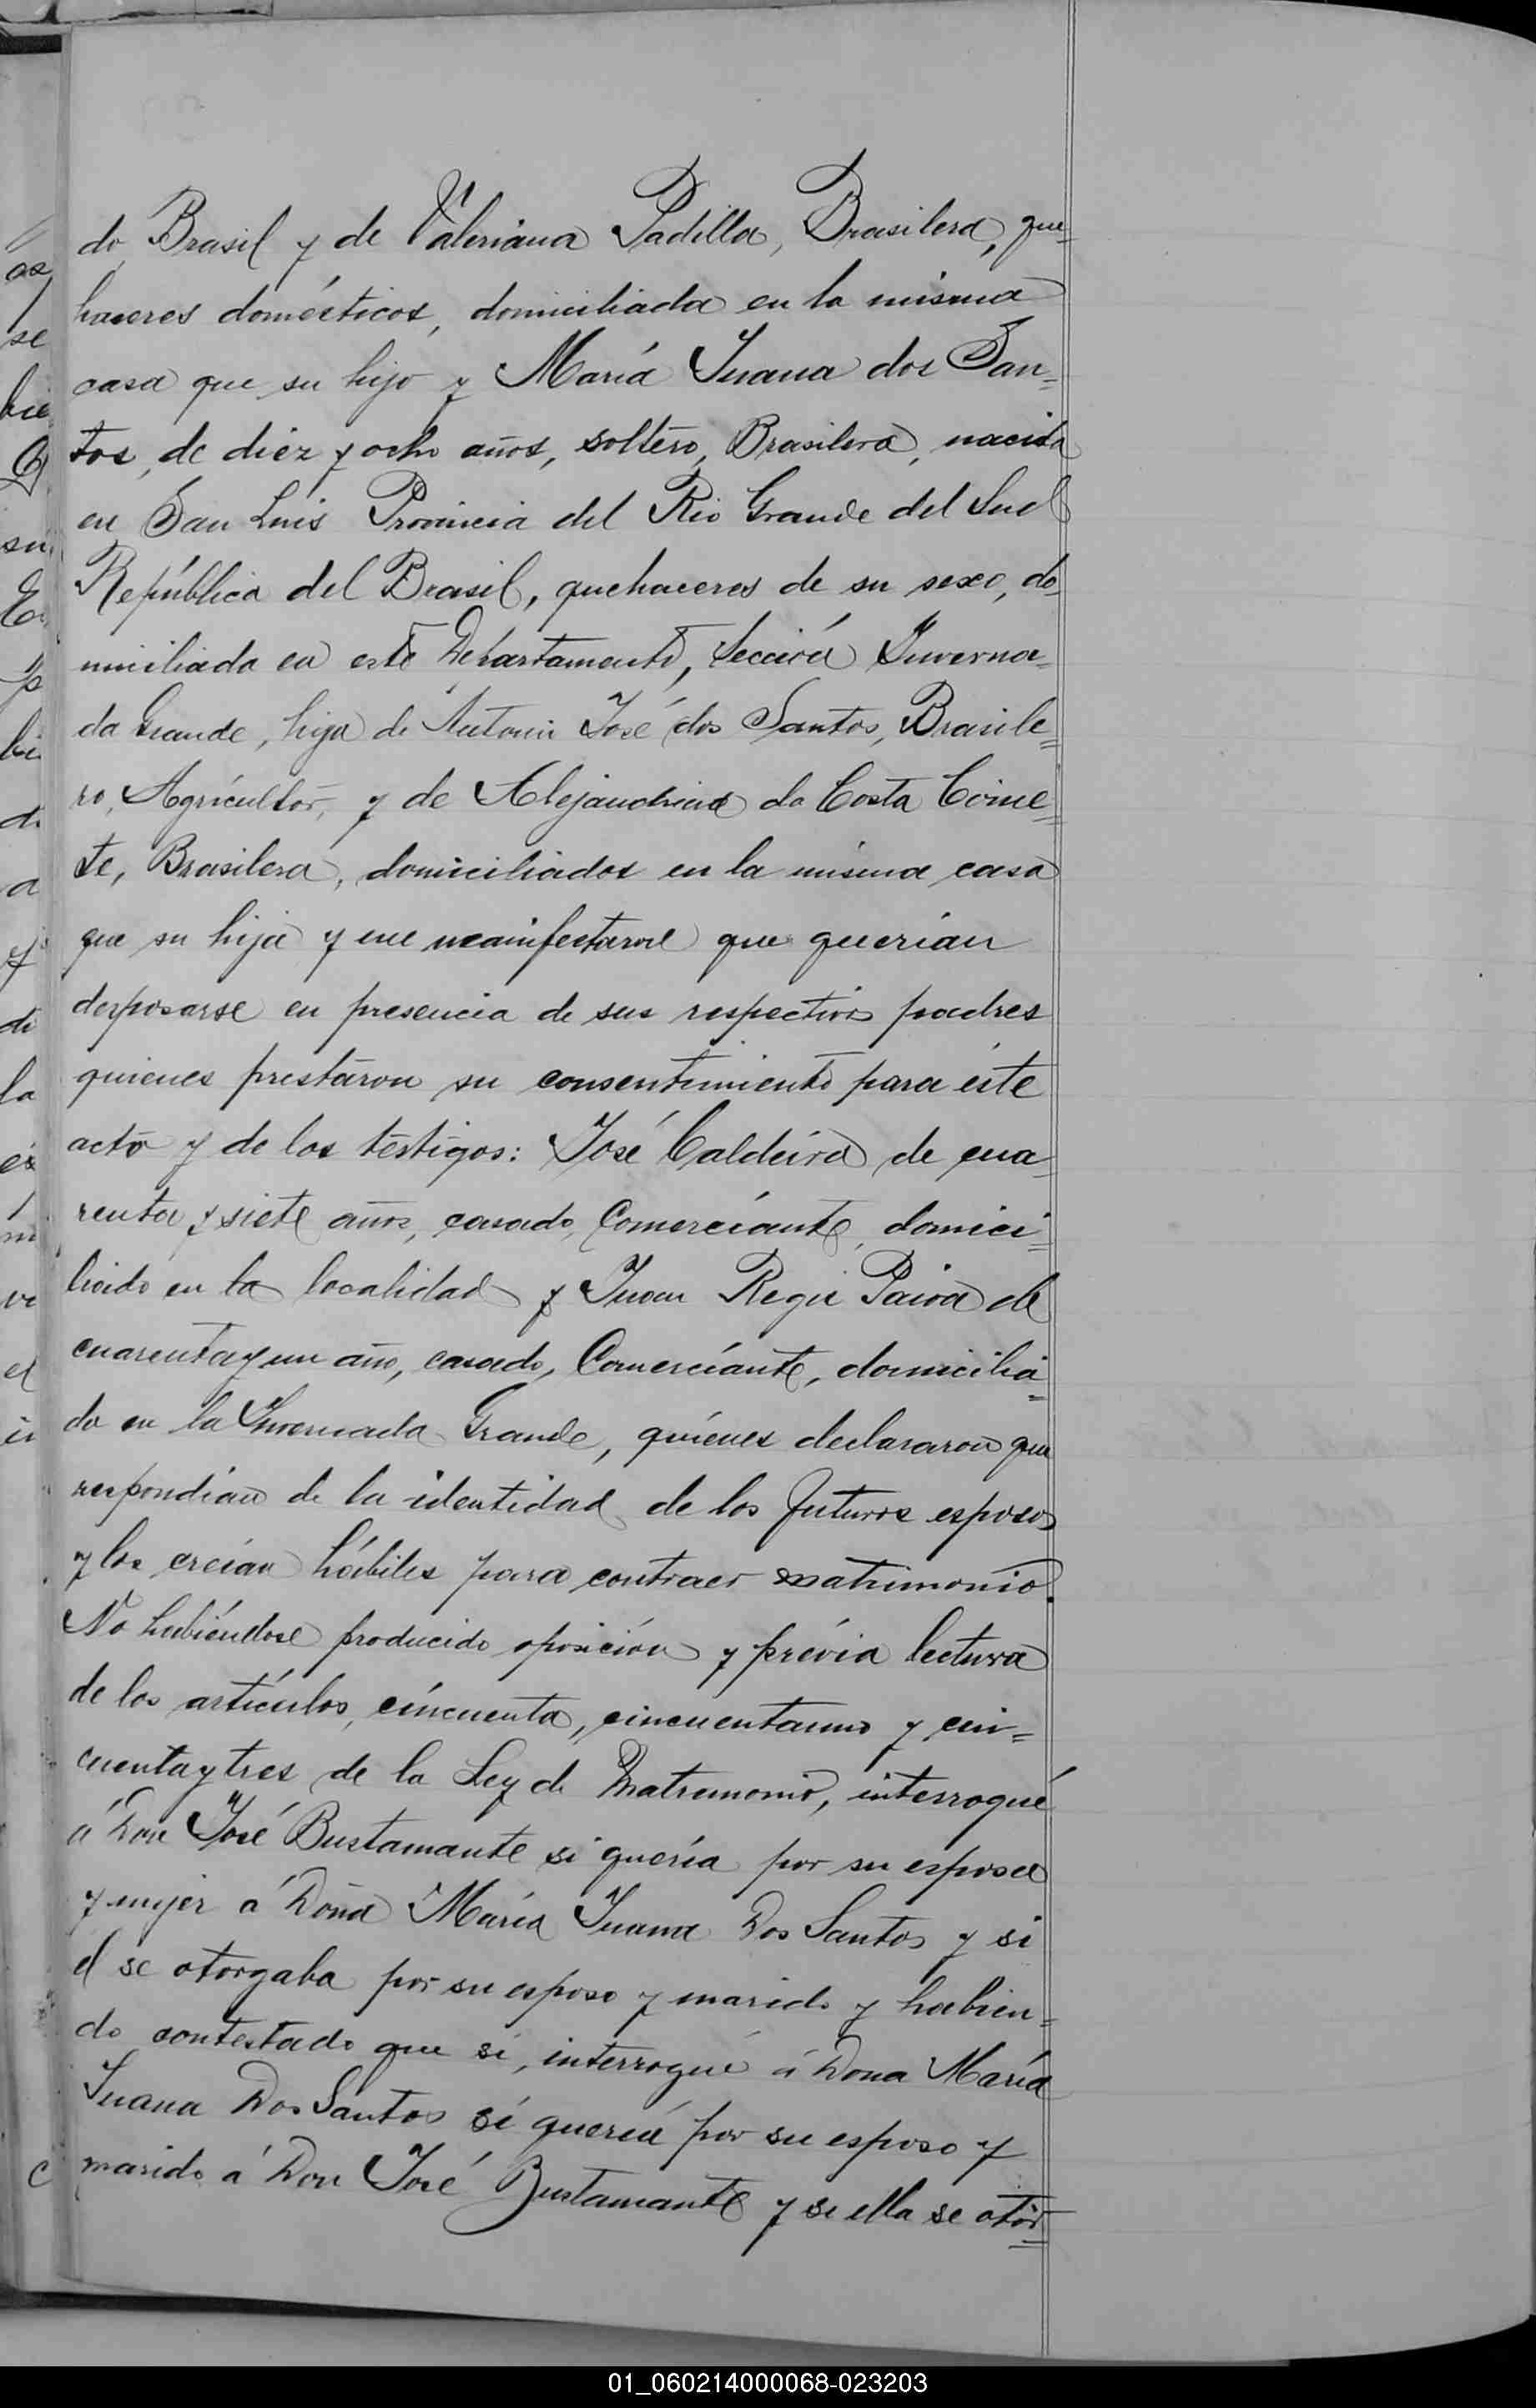 do, Brasil y de Valeriana Padilla, Brasilera, que-
haceres domésticos, domiciliada en la misma
casa que su hijo y María Juana dos San=
tos, de diez y ocho años, soltero, Brasilera, nacida
en San Luis Provincia del Rio Grande del Sud
República del Brasil, quehaceres de su sexo, do-
miciliada en este Departamento, Sección Inverna=
da Grande, hija de Antonio José dos Santos, Brasile=
ro, Agricultor, y de Alejandrina da Costa
te, Brasilera, domiciliados en la misma casa
que su hija y me manifestaron que querían
desposarse en presencia de sus respectivos padres
quienes prestaron su consentimiento para éste
acto y de los testigos: José Caldeira de cua-
renta y siete años, casado, Comerciante, domici=
liado en la localidad y Juan Paiva de
cuarenta y un año, casado, Comerciante, domicilia=
do en la Invernada Grande, quiénes declararon que
respondían de la identidad de los futuros esposos
y los creían hábiles para contraer matrimonio.
No habiéndose producido oposición y prévia lectura
de los artículos, cincuenta, cincuentauno y cin=
cuentaytres de la Ley de Matrimonio, interrogué
á Don José Bustamante si quería por su esposa
y mujer á Doña María Juana Dos Santos y si
él se otorgaba por su esposo y marido y habien=
do contestado que si, interrogué á Dona María
Juana Dos Santos si quería por su esposo y
marido á Don José Bustamante y si ella se otor=
01_060214000068-023203